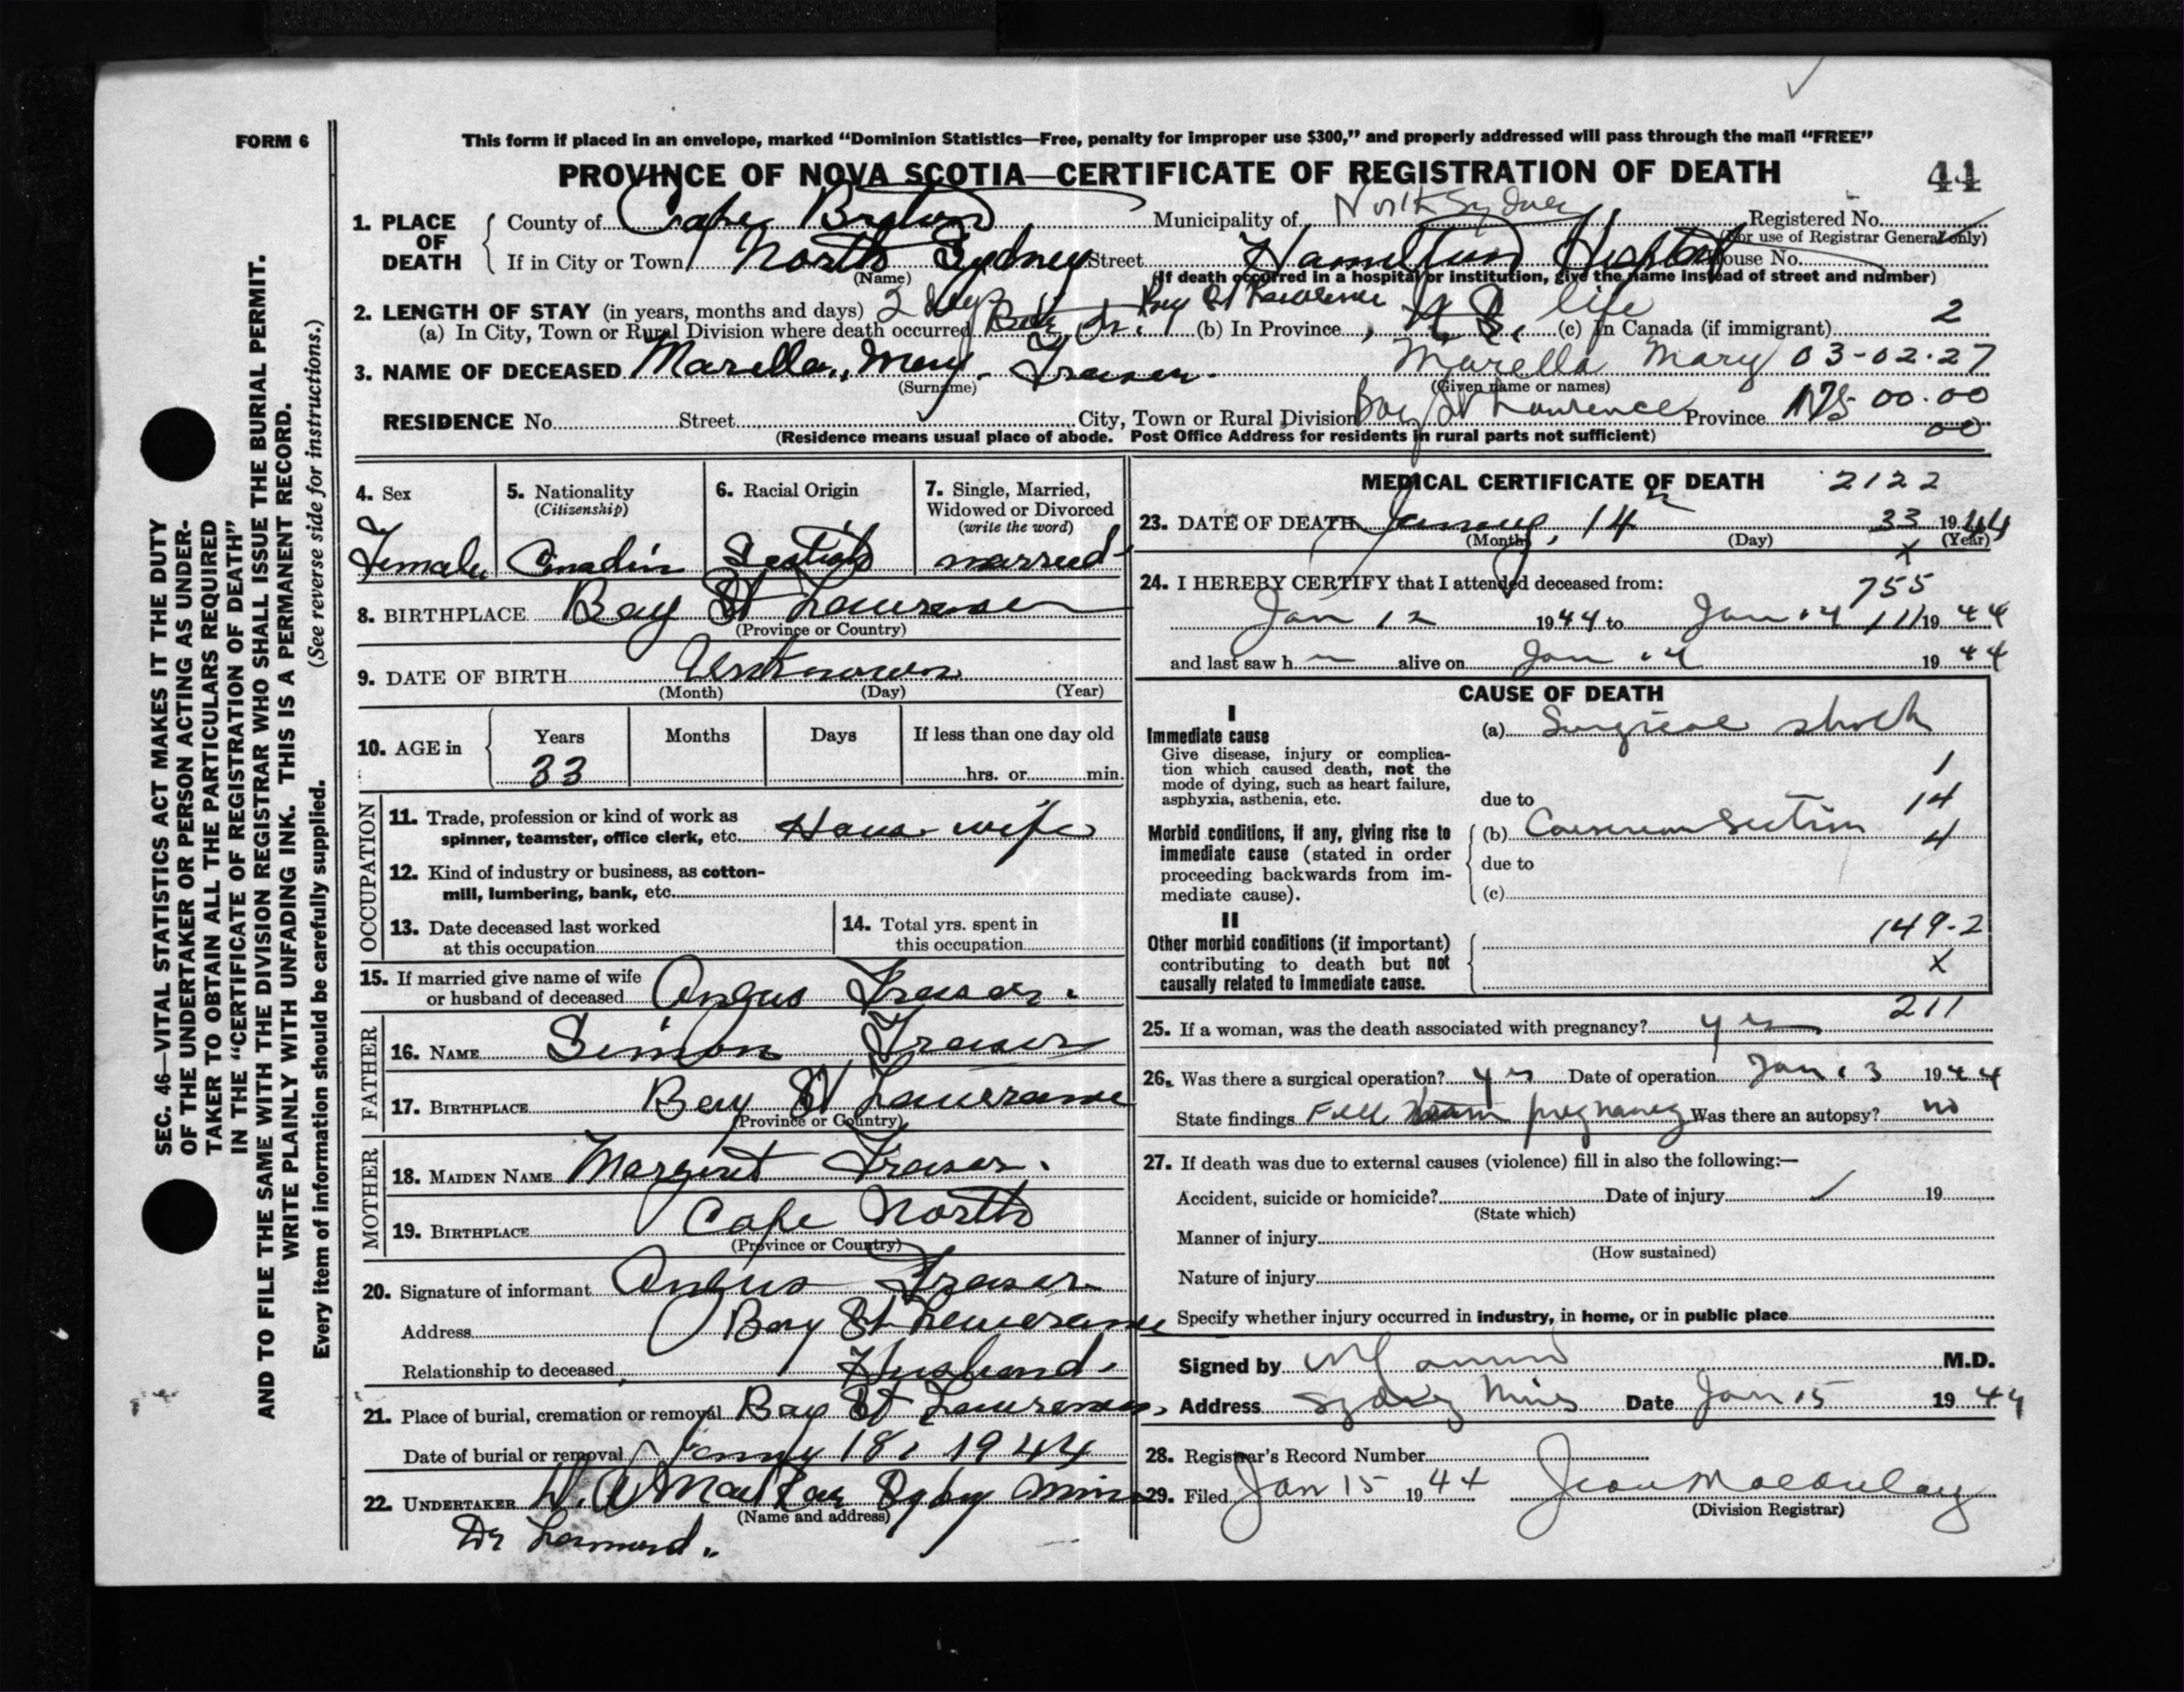 FORM 6
This form if placed in an envelope, marked “Dominion Statistics—Free, penalty for improper use $300,” and properly addressed will pass through the mail “FREE”
PROVINCE OF NOVA SCOTIA—CERTIFICATE OF REGISTRATION OF DEATH
44
1. PLACE OF DEATH
County of Cape Breton Municipality of North Sydney Registered No.
(For use of Registrar General only)
If in City or Town North Sydney Street Hamilton House No.
(Name) (If death occurred in a hospital or institution, give the name instead of street and number)
2. LENGTH OF STAY (in years, months and days) 2 days Bay St Lawrence life
(a) In City, Town or Rural Division where death occurred (b) In Province N S. (c) In Canada (if immigrant) 2
3. NAME OF DECEASED Marella, Mary Fraser. Marella Mary 03-02-27
(Surname) (Given name or names)
RESIDENCE No. Street City, Town or Rural Division Bay St Lawrence Province NS 00-00
00
(Residence means usual place of abode. Post Office Address for residents in rural parts not sufficient)
4. Sex
Female
5. Nationality
(Citizenship)
6. Racial Origin
Scotish
7. Single, Married, Widowed or Divorced
(write the word)
married
8. BIRTHPLACE Bay St Lawrence
(Province or Country)
9. DATE OF BIRTH Unknown
(Month) (Day) (Year)
10. AGE in Years Months Days If less than one day old
33 hrs. or min.
OCCUPATION
11. Trade, profession or kind of work as
spinner, teamster, office clerk, etc. House wife
12. Kind of industry or business, as cotton-
mill, lumbering, bank, etc.
13. Date deceased last worked
at this occupation
14. Total yrs. spent in
this occupation
15. If married give name of wife
or husband of deceased Angus Fraser.
FATHER
16. NAME Simon Fraser
17. BIRTHPLACE Bay St Lawrence
(Province or Country)
MOTHER
18. MAIDEN NAME Margaret Fraser.
19. BIRTHPLACE Cape North
(Province or Country)
20. Signature of informant Angus Fraser
Address Bay St Lawrence
Relationship to deceased Husband.
21. Place of burial, cremation or removal Bay St Lawrence
Date of burial or removal 18, 1944
22. UNDERTAKER
(Name and address)
Dr
MEDICAL CERTIFICATE OF DEATH 2122
23. DATE OF DEATH January, 14 33 1944
(Month) (Day) (Year)
x
24. I HEREBY CERTIFY that I attended deceased from: 755
Jan 12 1944 to Jan 14 111 1944
and last saw h alive on Jan 14 1944
CAUSE OF DEATH
I
Immediate cause
Give disease, injury or complica-
tion which caused death, not the
mode of dying, such as heart failure,
asphyxia, asthenia, etc.
(a) Surgical shock
1
due to 14
Morbid conditions, if any, giving rise to
immediate cause (stated in order
proceeding backwards from im-
mediate cause).
(b) Caesarean Section 4
due to
(c)
II
Other morbid conditions (if important)
contributing to death but not
causally related to immediate cause.
149-2
X
25. If a woman, was the death associated with pregnancy? yes 211
26. Was there a surgical operation? yes Date of operation Jan 13 1944
State findings Full term pregnancy Was there an autopsy? no
27. If death was due to external causes (violence) fill in also the following:—
Accident, suicide or homicide? Date of injury 19
(State which)
Manner of injury
(How sustained)
Nature of injury
Specify whether injury occurred in industry, in home, or in public place
Signed by M.D.
Address Sydney Mines Date Jan 15 1944
28. Registrar's Record Number
29. Filed Jan 15 1944 Jean Macaulay
(Division Registrar)
SEC. 46—VITAL STATISTICS ACT MAKES IT THE DUTY
OF THE UNDERTAKER OR PERSON ACTING AS UNDER-
TAKER TO OBTAIN ALL THE PARTICULARS REQUIRED
IN THE “CERTIFICATE OF REGISTRATION OF DEATH”
AND TO FILE THE SAME WITH THE DIVISION REGISTRAR WHO SHALL ISSUE THE BURIAL PERMIT.
WRITE PLAINLY WITH UNFADING INK. THIS IS A PERMANENT RECORD.
Every item of information should be carefully supplied. (See reverse side for instructions.)